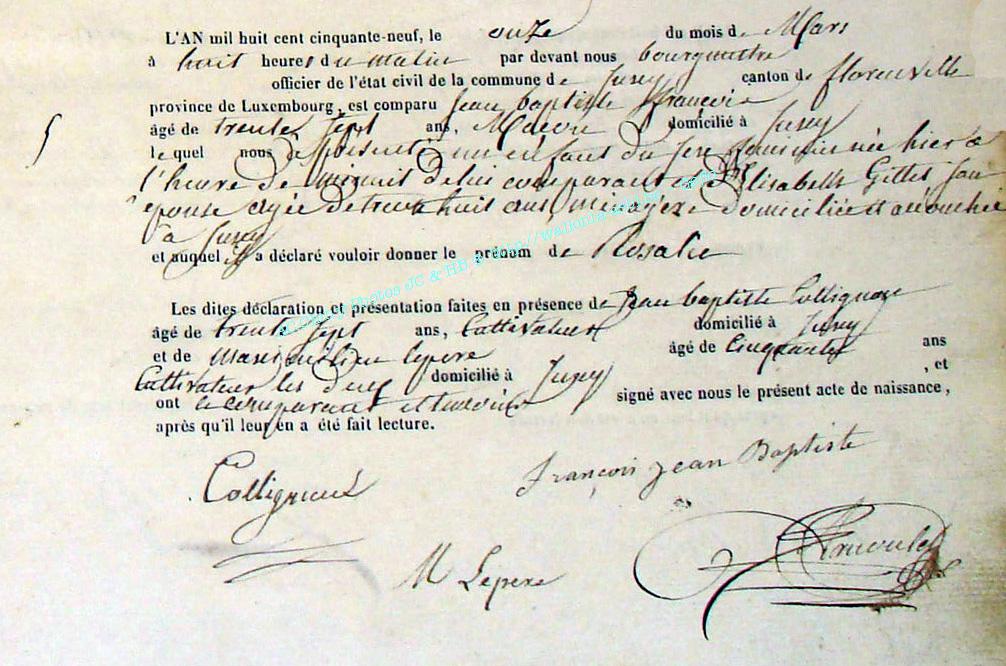 L'AN mil huit cent cinquante-neuf, le onze du mois de Mars
à huit heures du matin par devant nous bourgmestre
officier de l'état civil de la commune de Jusey canton de florenville
province de Luxembourg, est comparu Jean baptiste françois
5 âgé de trente sept ans, Maçon domicilié à Jusey
lequel nous a présenté un enfant du sexe féminin née hier à
l'heure de minuit de lui comparant et de Elisabeth Gilles son
épouse agée de trente huit ans, ménagère domiciliée et accouchée
à Jusey
et auquel il a déclaré vouloir donner le prénom de Rosalie
Les dites déclaration et présentation faites en présence de Jean baptiste Collignon
âgé de trente sept ans, Cultivateur domicilié à Jusey
et de maximilien lepere âgé de Cinquante ans
Cultivateur les deux domicilié à Jusey , et
ont le comparant et temoins signé avec nous le présent acte de naissance,
après qu'il leur en a été fait lecture.
Collignon
François Jean Baptiste
M Lepere